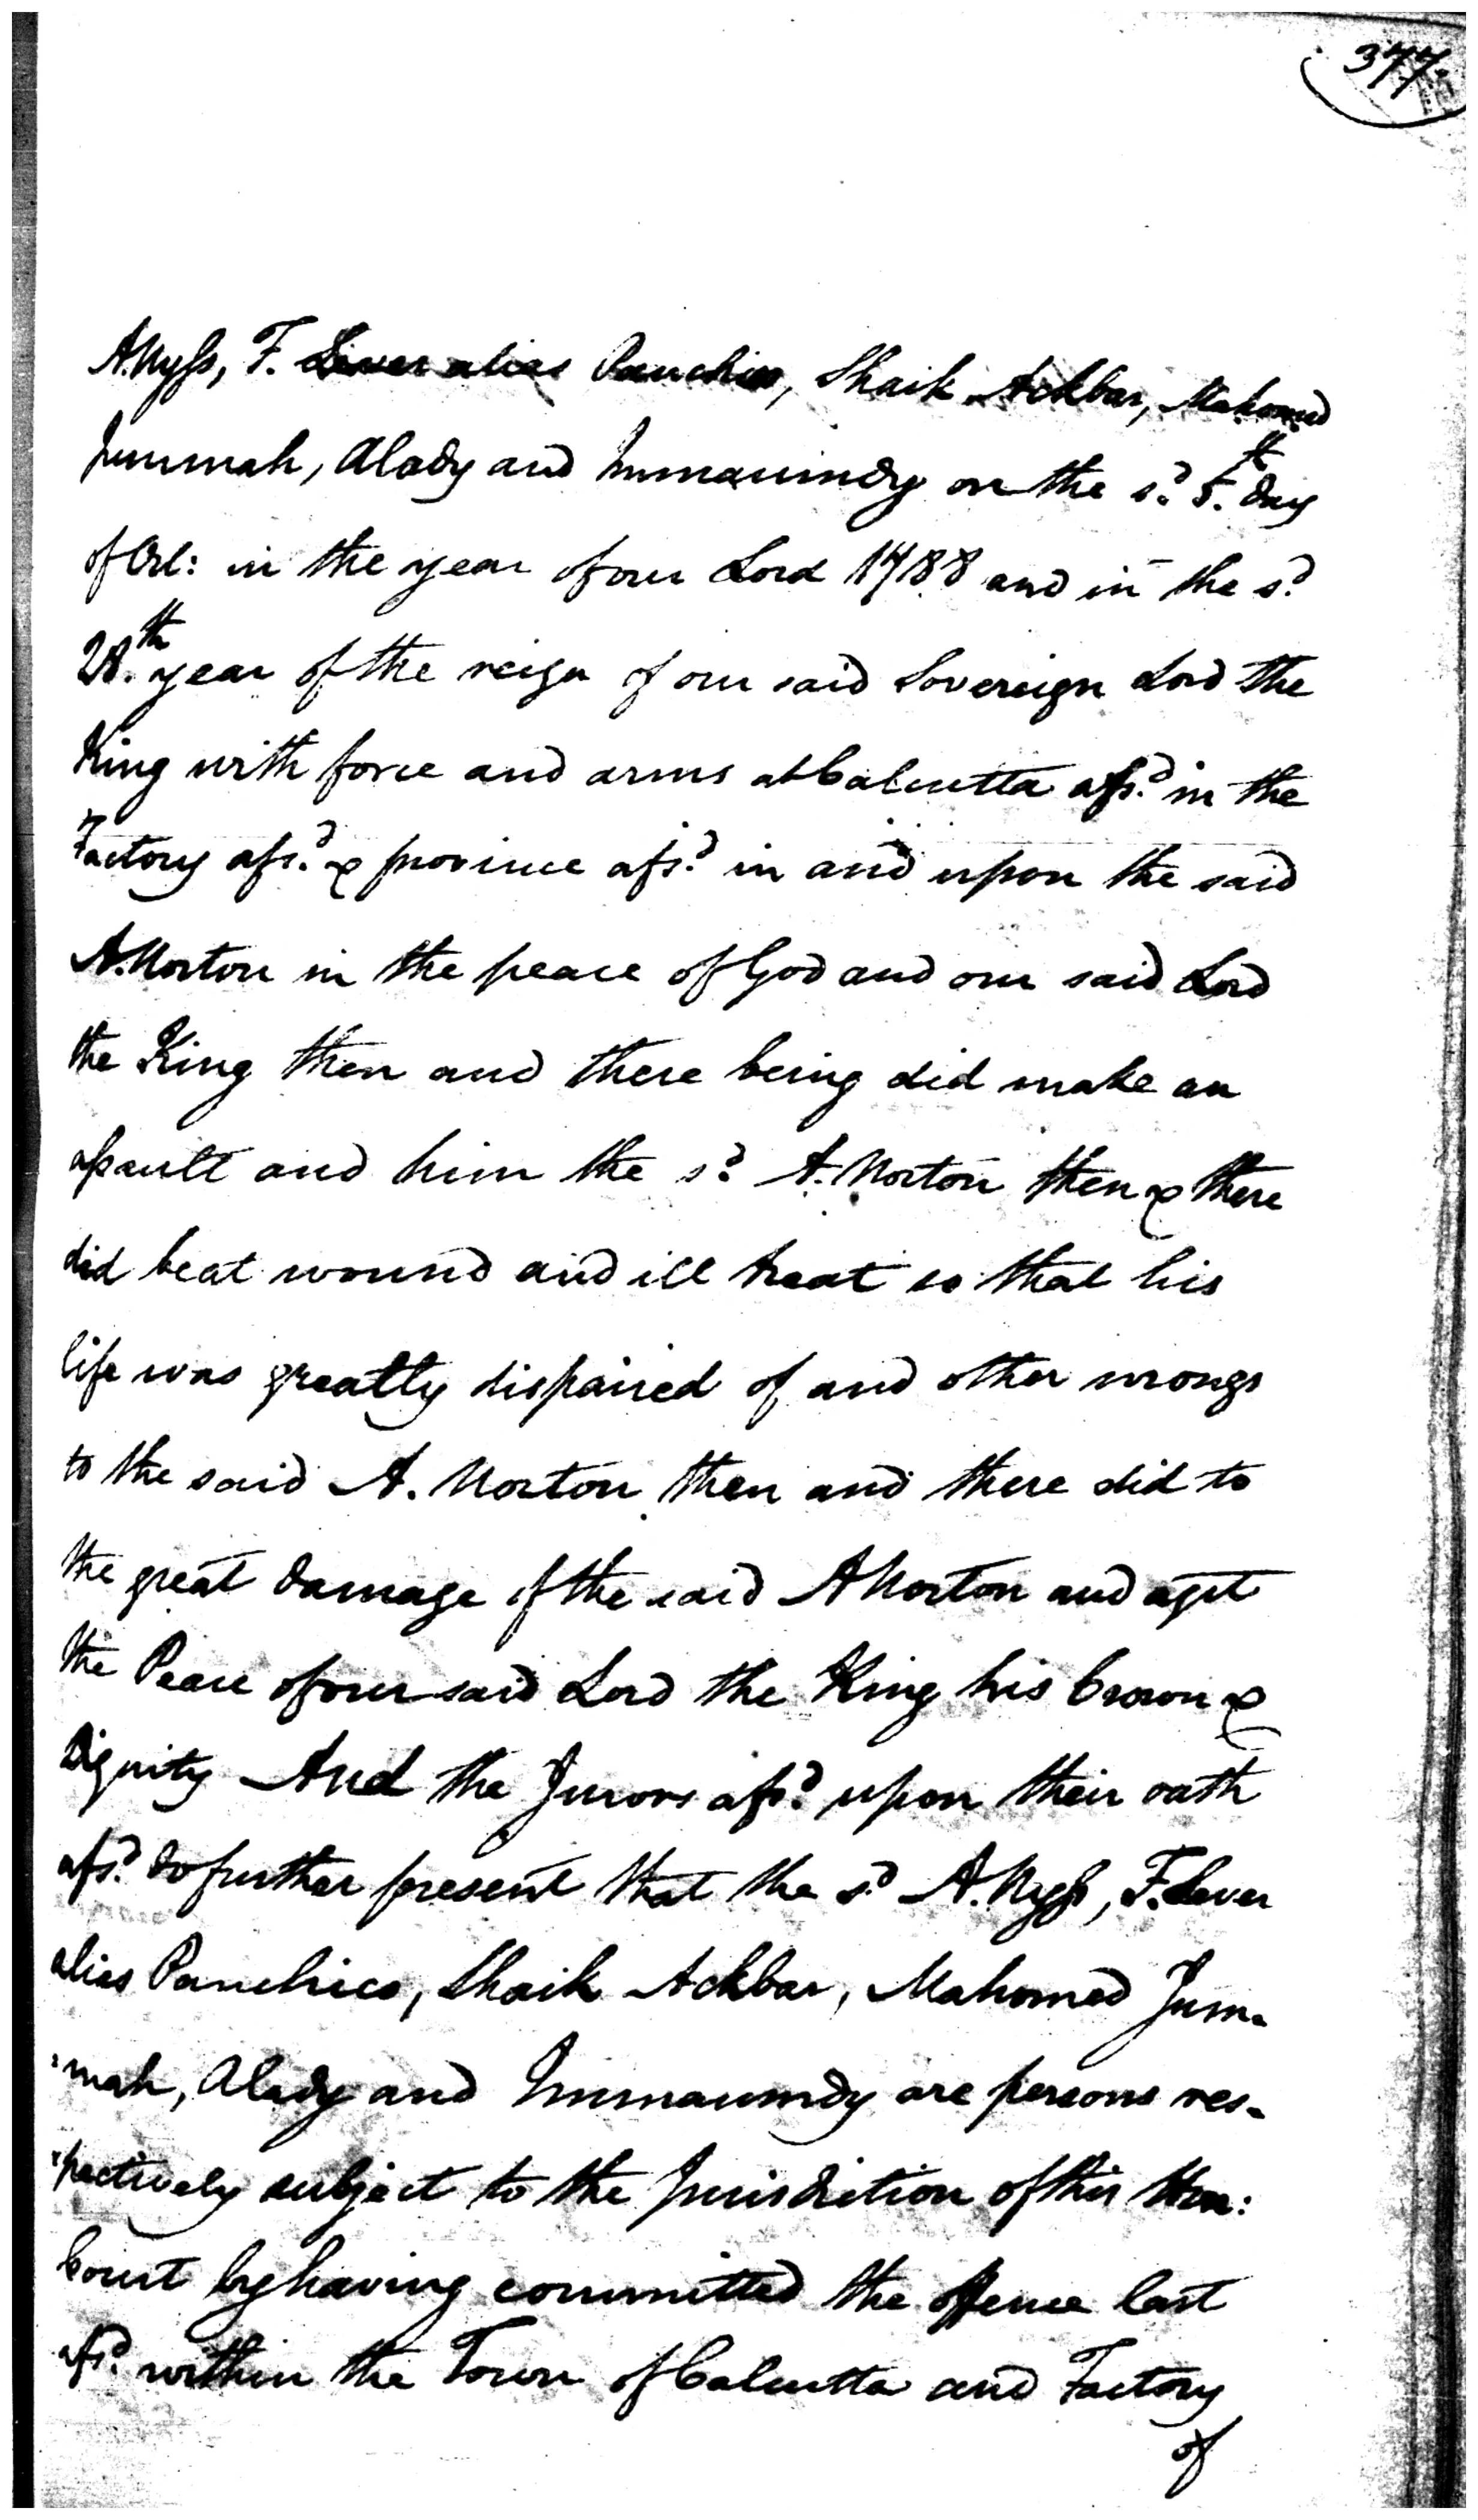 377.
A. Nyss, F. Lever alias Panchico, Shaik Ackbar, Mahomed
Jummah, Alady and Immaumdy on the sd. 5th. day
of Oct: in the year of our Lord 1788 and in the sd.
28th. year of the reign of our said Sovereign Lord the
King with force and arms at Calcutta afsd. in the
Factory afsd. & province afsd. in and upon the said
A. Norton in the peace of God and our said Lord
the King then and there being did make an
assault and him the sd. A. Norton then & there
did beat wound and ill treat so that his
life was greatly dispaired of and other wrongs
to the said A. Norton then and there did to
the great damage of the said A Norton and agst
the Peace of our said Lord the King his Crown &
Dignity And the Jurors afsd. upon their oath
afsd. do further present that the sd. A. Nyss, F. Lever
alias Panchico, Shaik Ackbar, Mahomed Jum-
mah, Alady and Immaumdy are persons res-
pectively subject to the Jurisdiction of this Hon:
Court by having committed the offence last
afsd. within the Town of Calcutta and Factory
of